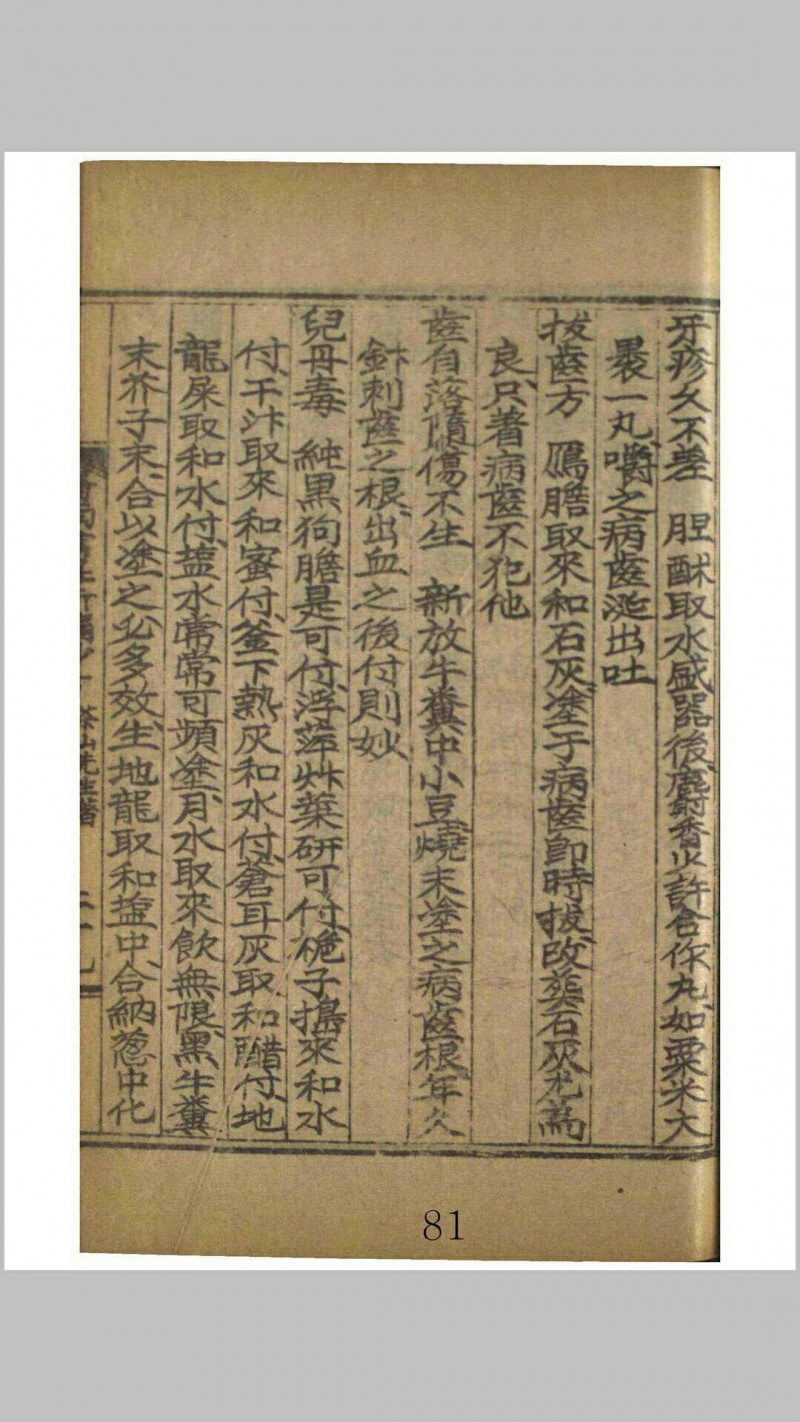 牙疹久不差　胆酥取水盛器後麝香少許合作丸如粟米大
裹一丸嚼之病齒涎出吐
拔齒方　鴈膽取來和石灰塗于病齒卽時拔改奠石灰尤爲
良只着病齒不犯他
齒自落隨傷不生　新放牛糞中小豆燒末塗之病齒根年久
針刺齒之根出血之後付則妙
兒丹毒　純黑狗膽是可付浮萍艸葉研可付梔子搗來和水
付干汁取來和蜜付釜下熱灰和水付蒼耳灰取和醋付地
龍屎取和水付塩水常常可頻塗月水取來飮無限黑牛糞
末芥子末合以塗之必多效生地龍取和塩中合納葱中化
茶山先生著
81